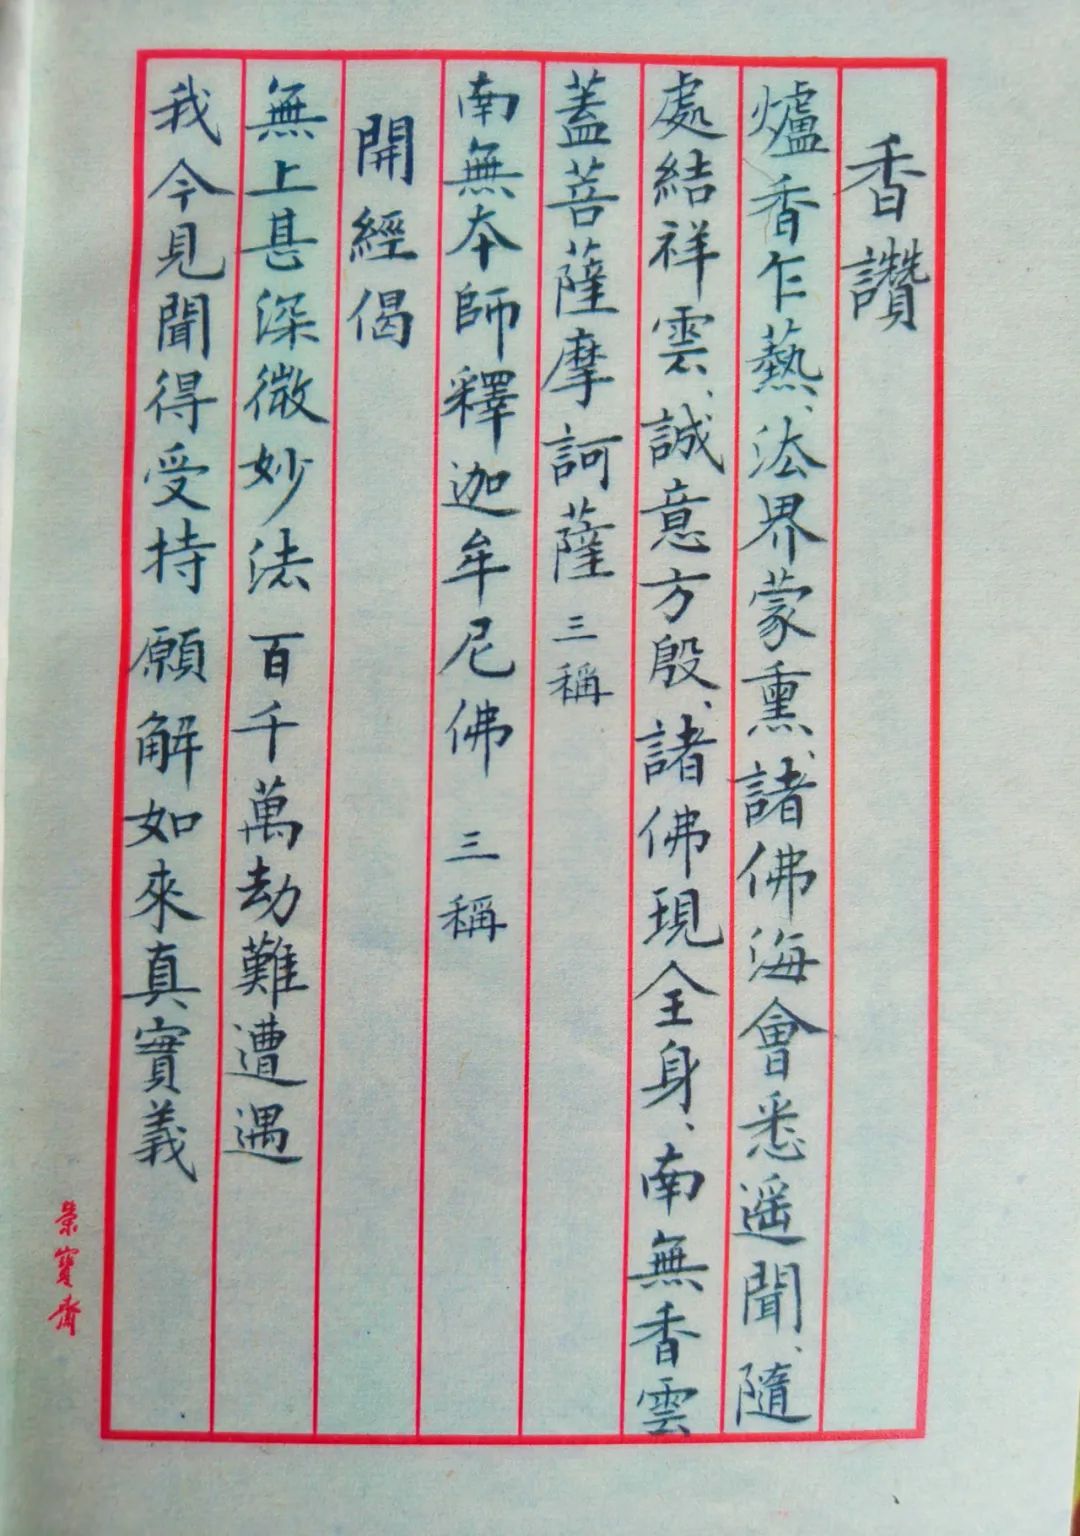 香讚
爐香乍爇、法界蒙熏、諸佛海會悉遥聞、隨
處結祥雲、誠意方殷、諸佛現全身、南無香雲
蓋菩薩摩訶薩 三稱
南無本師釋迦牟尼佛 三稱
開經偈
無上甚深微妙法 百千萬劫難遭遇
我今見聞得受持 願解如來真實義
榮寶齋